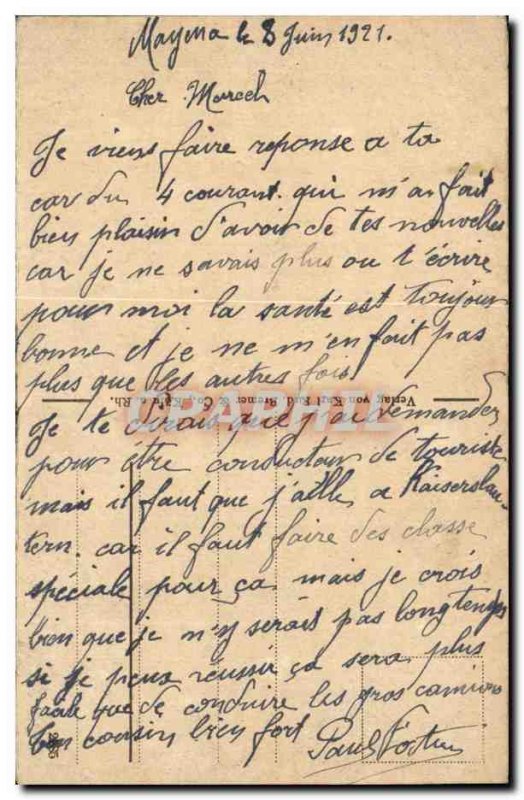 Mayena le 8 Juin 1921.
Cher Marcel
Je viens faire reponse a ta
car du 4 courant. qui m'a fait
bien plaisin d'avoir de tes nouvelles
car je ne savais plus ou t'écrire
pour moi la santé est toujour
bonne et je ne m'en fait pas
plus que les autres fois
Verlag von Karl Rud. Bremer & Co., Köln a. Rh.
Je te dirais que j'ai demander
pour être conducteur de touriste
mais il faut que j'aille a Kaiserslau-
tern. car il faut faire des classe
spéciale pour ça mais je crois
bien que je n'y serais pas longtemps
si je peux réussir ça sera plus
facile que de conduire les gros camions
ton cousin bien fort Paul